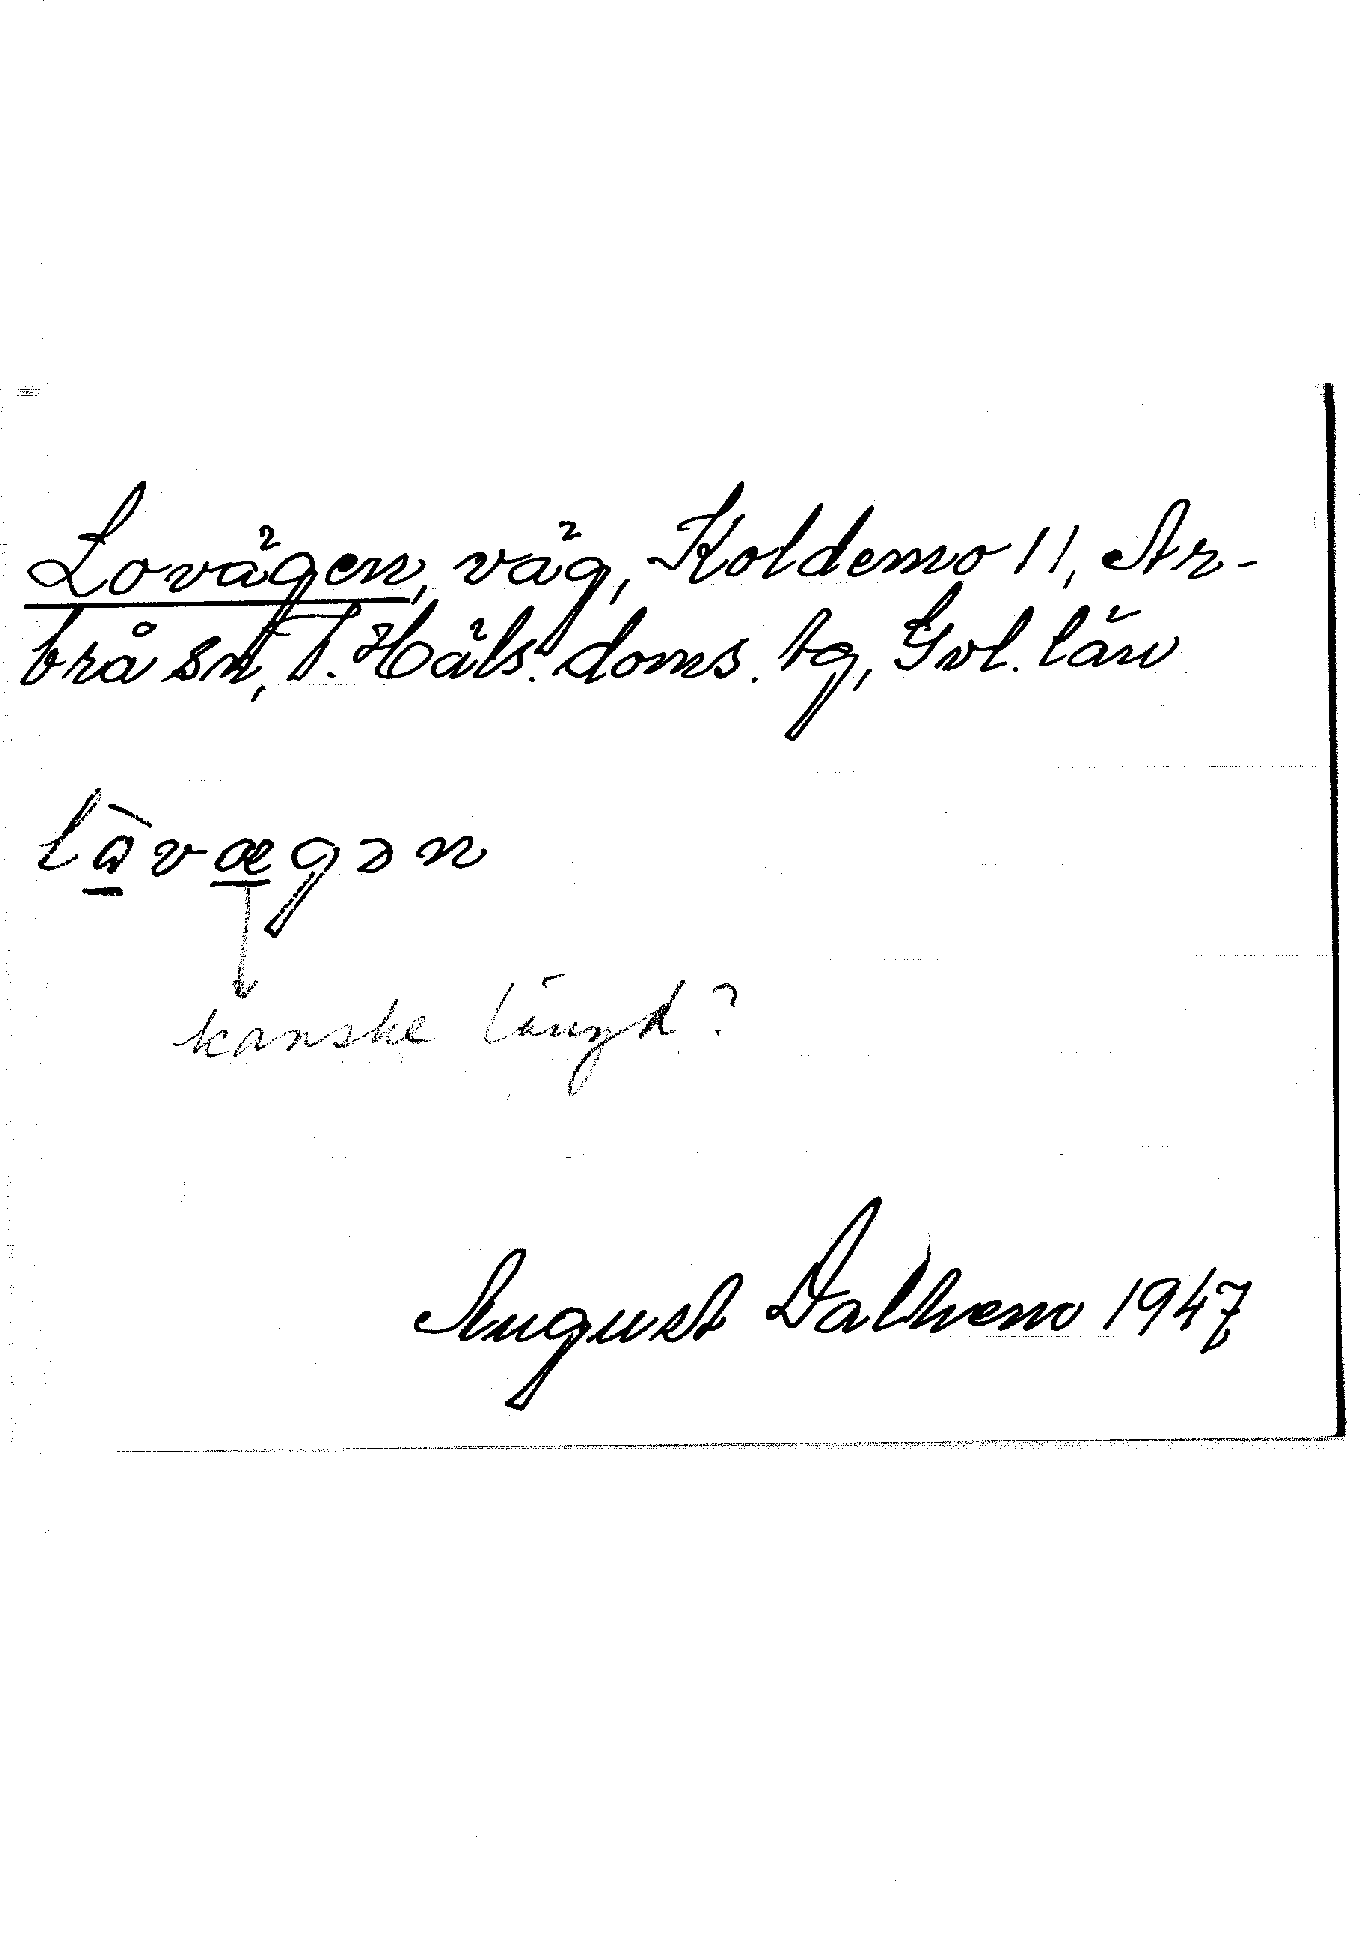 Lovägen, väg, Koldemo 11, Ar-
brå sn, V. Häls. doms. tg, Gvl. län
làvægən
kanske längd?
August Dalhemo 1947